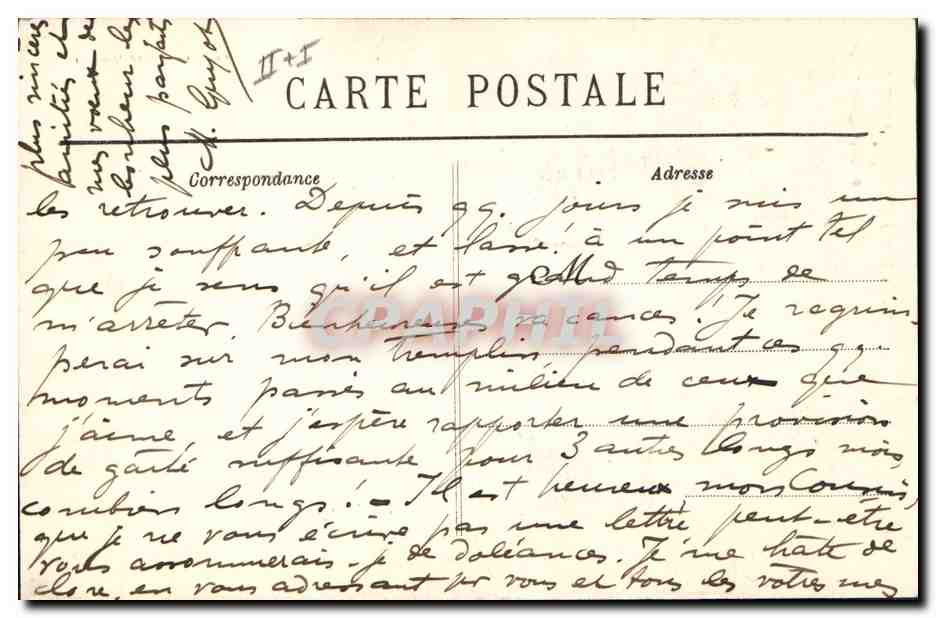 II + I
CARTE POSTALE
Correspondance
Adresse
les retrouver. Depuis qq. jours je suis un
peu souffrante, et lasse à un point tel
que je sens qu'il est grand temps de
m'arrêter. Bienheureuses vacances! Je regrim-
perai sur mon tremplin pendant ces qq.
moments passés au milieu de ceux que
j'aime, et j'espère rapporter une provision
de gaîté suffisante pour 3 autres longs mois,
combien longs! - Il est heureux, mon Cousin,
que je ne vous écrive pas une lettre, peut-être
vous assommerais-je de doléances. Je me hâte de
clore, en vous adressant pr vous et tous les vôtres mes
plus sincères
amitiés et
mes vœux de
bonheur les
plus parfaits
M. Guyot
CPAPHIL